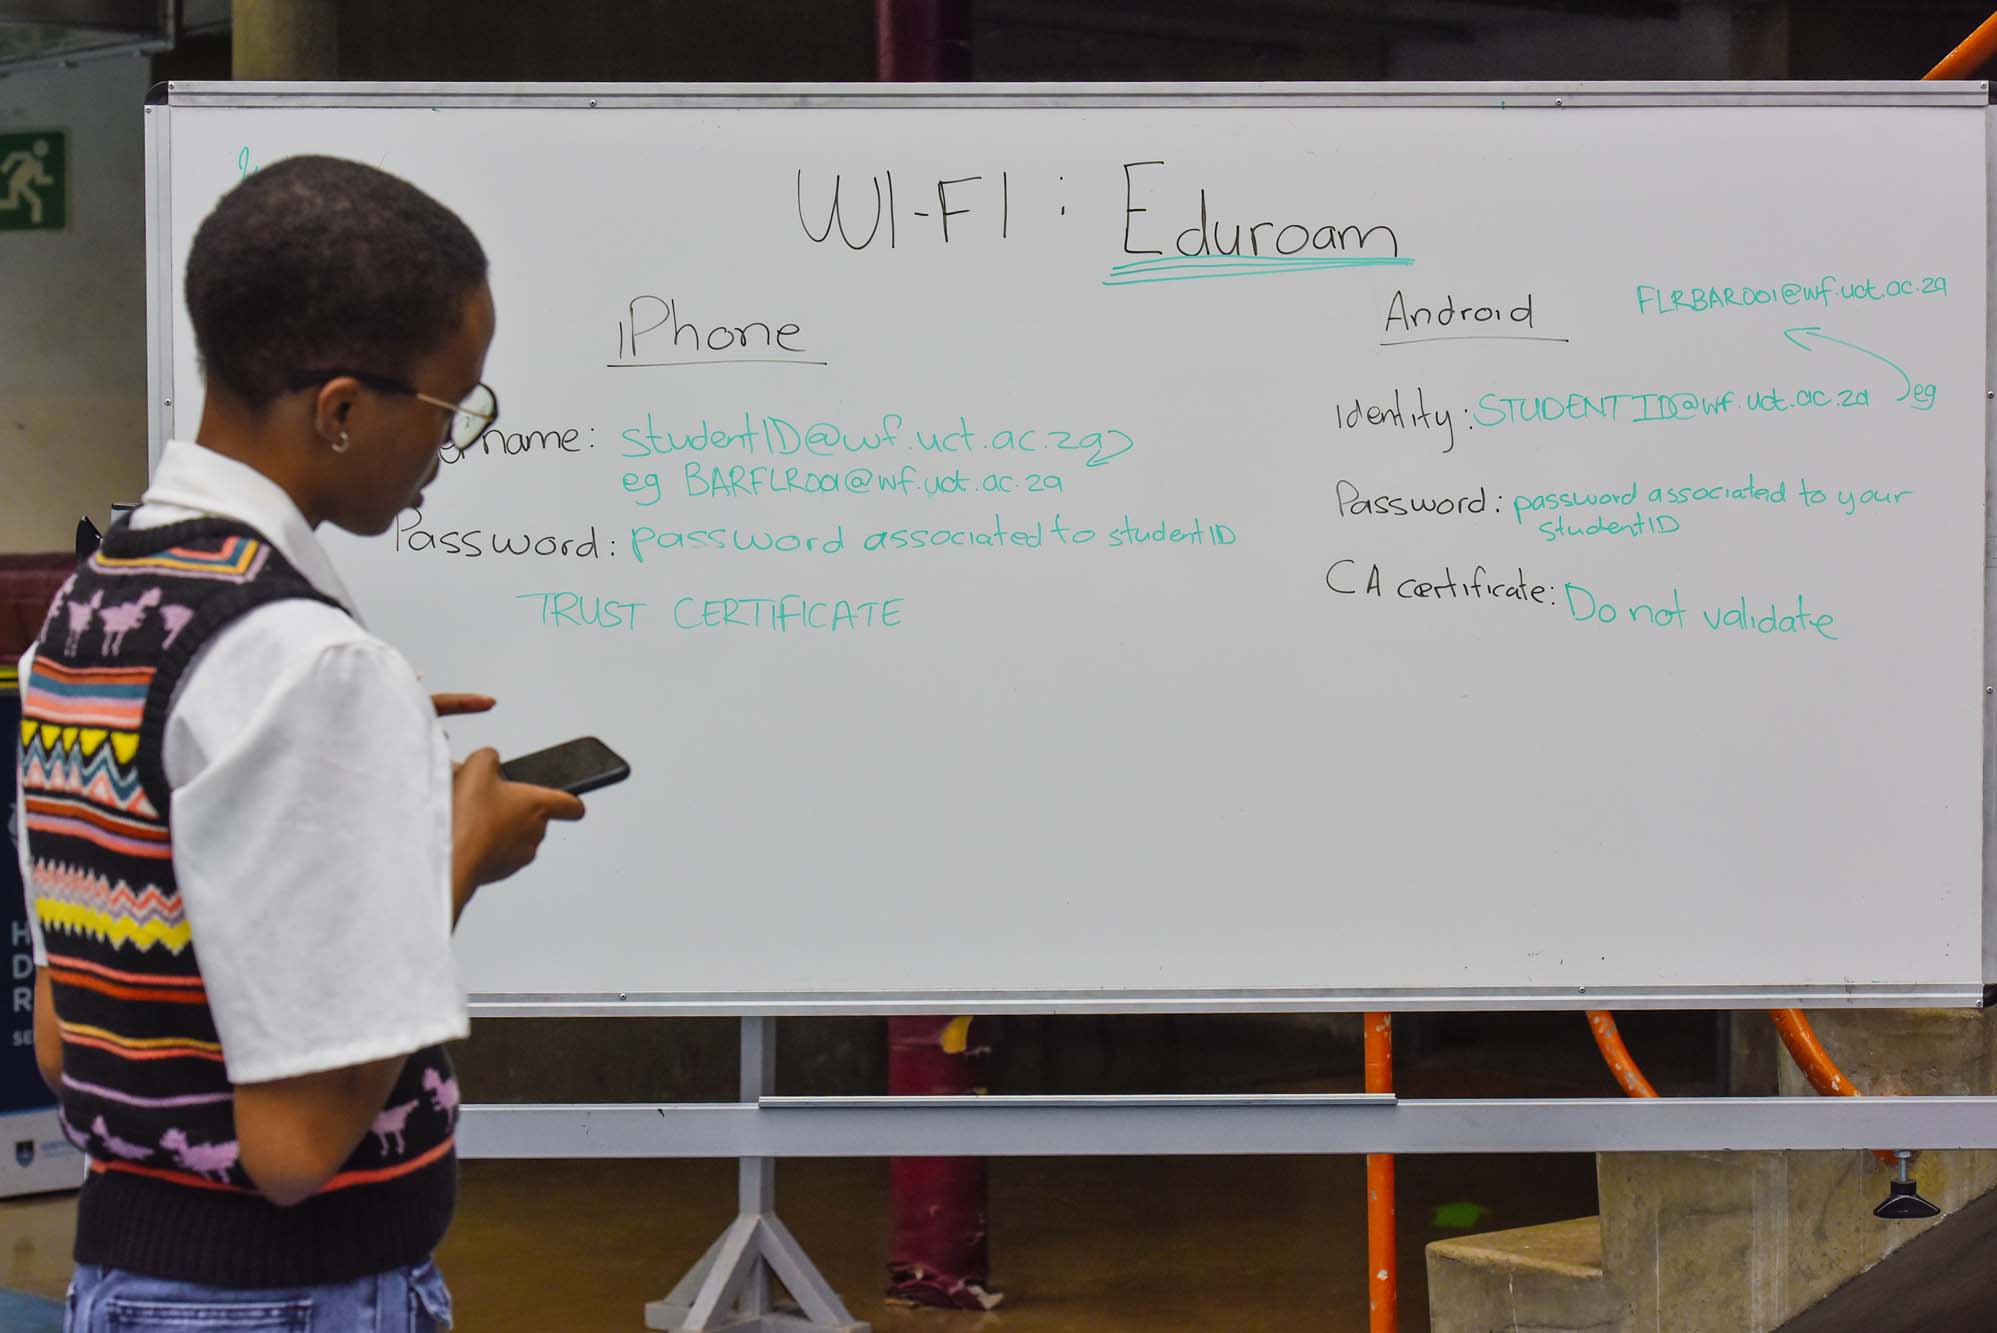 WI-FI : Eduroam
iPhone
name: studentID@wf.uct.ac.za
eg BARFLR001@wf.uct.ac.za
Password: password associated to studentID
TRUST CERTIFICATE
Android
FLRBAR001@wf.uct.ac.za
Identity: STUDENTID@wf.uct.ac.za eg
Password: password associated to your
studentID
CA certificate: Do not validate
H
D
R
SE